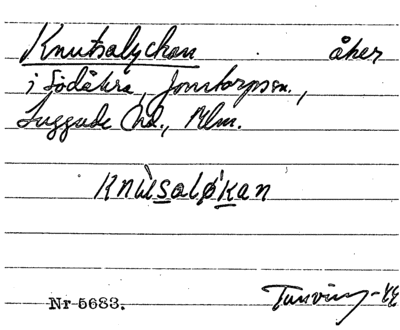 Knutsalyckan åker
i Södåkra, Jonstorpssn.,
Luggude hd., Mlm.
Knùtsalǿkan
Nr 5683. Tunving-44